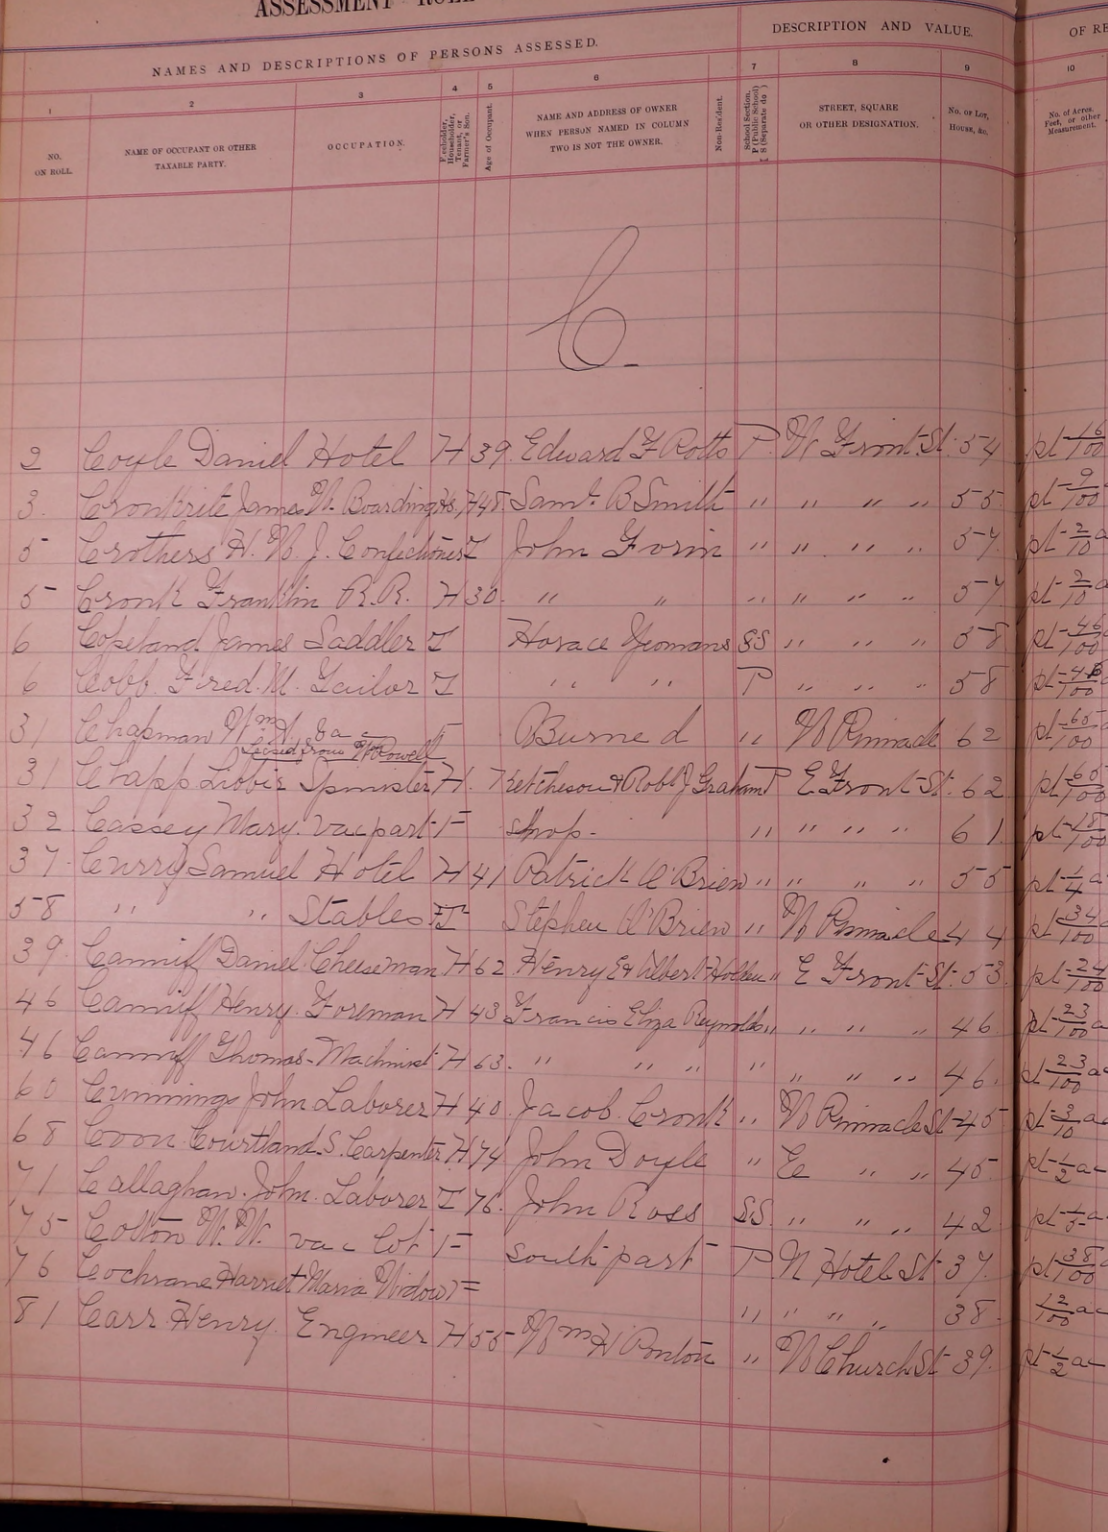 ASSESSMENT ROLL
NAMES AND DESCRIPTIONS OF PERSONS ASSESSED. DESCRIPTION AND VALUE. OF RE
1 2 3 4 5 6 7 8 9 10
NO. ON ROLL. NAME OF OCCUPANT OR OTHER TAXABLE PARTY. OCCUPATION. Freeholder, Householder, Tenant, or Farmer's Son. Age of Occupant. NAME AND ADDRESS OF OWNER WHEN PERSON NAMED IN COLUMN TWO IS NOT THE OWNER. Non-Resident. School Section. P (Public School) S (Separate do ) STREET, SQUARE OR OTHER DESIGNATION. No. of Lot, House, &c. No. of Acres, Feet, or other Measurement.
C.
2 Coyle Daniel Hotel H 39 Edward F Rotts P. W Front St. 54 pt 16/100
3. Cronkrite James W. Boarding Hs. H 48 Saml. B Smith " " " " 55 pt 9/100
5 Crothers H. W. J. Confectioner T John Forin " " " " 57 pt 2/10
5 Cronk Franklin R.R. H 30 " " " " " " 57 pt 2/10 a
6 Copeland James Saddler T Horace Yeomans SS " " " 58 pt 46/100
6 Cobb Fred. M. Tailor T " " P " " " 58 pt 46/100
31 Chapman Wm H. Vac F Burned " W Pinnacle 62 pt 60/100
Leased from W Rowell
31 Clapp Libbie Spinister H. Ketcheson & Robb J Graham P E Front St. 62 pt 60/100
32 Cassey Mary. Vac part F shop- " " " " 61 pt 18/100
37 Curry Samuel Hotel H 41 Patrick O'Brien " " " " 55 pt 1/4 a
58 " " Stables T Stephen O'Brien " W Pinnacle 44 pt 34/100
39 Canniff Daniel Cheeseman H 62 Henry E & Albert Holden " E Front St. 53 pt 24/100
46 Canniff Henry. Foreman H 43 Francis Eliza Reynolds " " " " 46 pt 23/100 a
46 Canniff Thomas Machinist H 63. " " " " " " " 46. pt 23/100 a
60 Cummings John Laborer H 40 Jacob Cronk " W Pinnacle St 45 pt 3/10 a
68 Coon Courtland S. Carpenter H 74 John Doyle " E " " 45 pt 1/2 a
71 Callaghan John. Laborer T 76 John Ross SS " " " 42 pt 1/5 a
75 Colton W. W. vac lot F south part P N Hotel St 37 pt 38/100
76 Cochrane Harriet Maria Widow F " " " " 38 12/100 a
81 Carr Henry Engineer H 55 Wm H Ponton " N Church St 39. pt 1/2 a